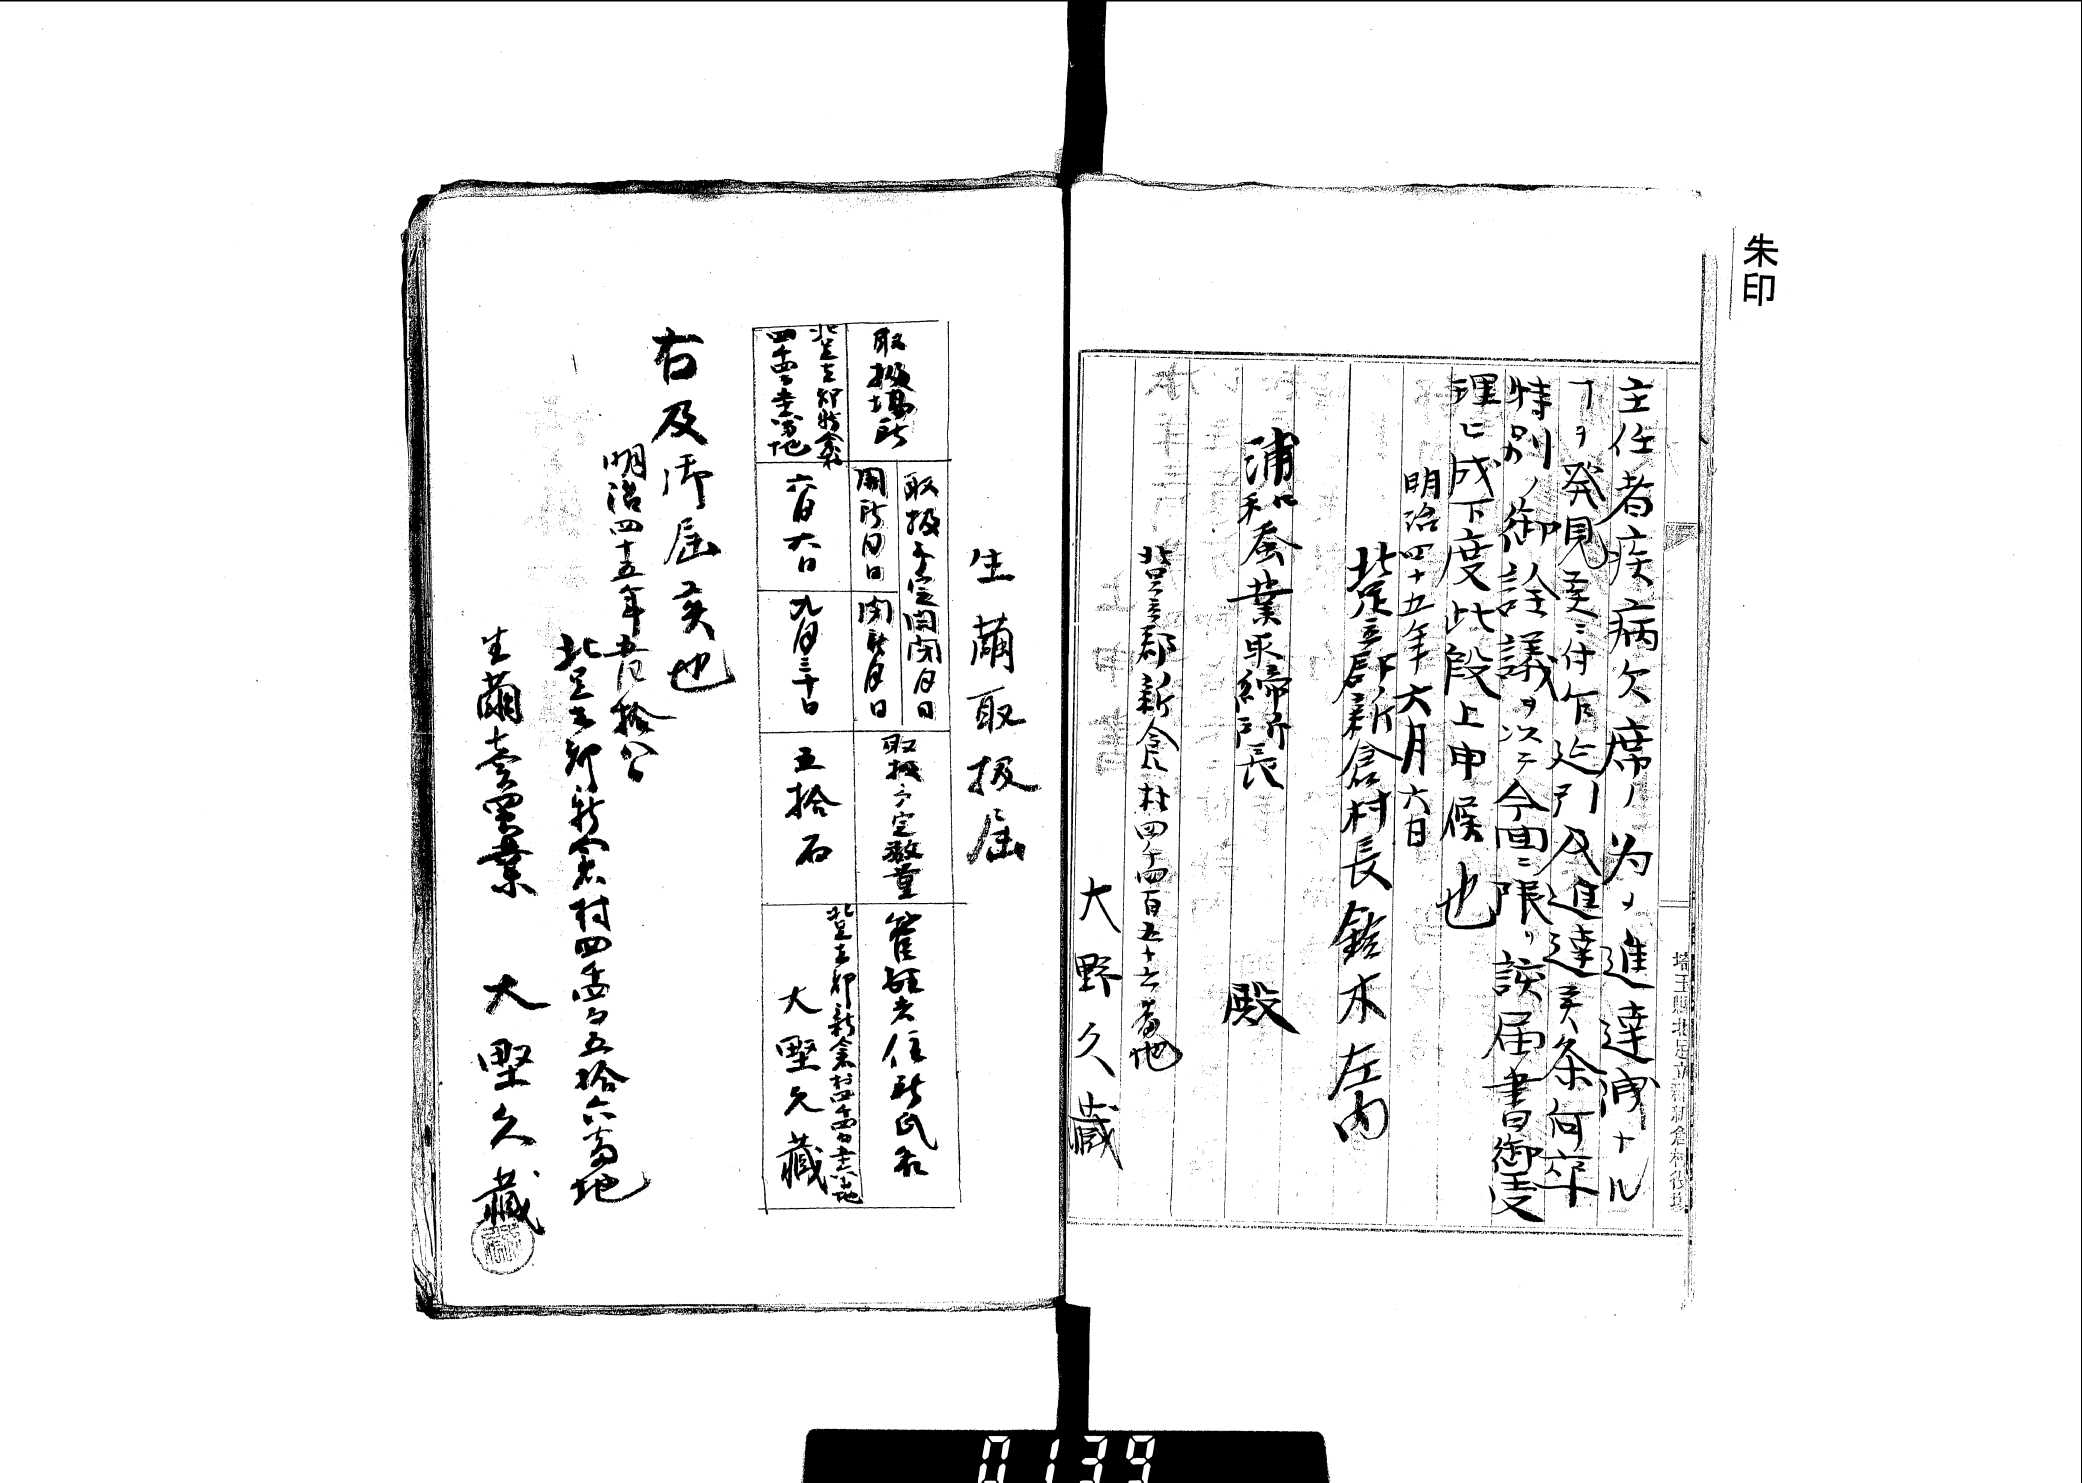 朱印
埼玉縣北足立郡新倉村役場
主任者疾病欠席ノ為メ進達洩ナル
ヿヲ発見致候ニ付乍延引及進達候条何卒
特別ノ御詮議ヲ以テ今回ニ限リ該届書御受
理ニ成下度此段上申候也
明治四十五年六月六日
北足立郡新倉村長鈴木左内
浦和蚕業取締所長 殿
北足立郡新倉村四千四百五十六番地
大野久藏
生繭取扱届
取扱場所
取扱予定開閉月日
開所月日
閉所月日
取扱予定数量
管理者住所氏名
北足立郡新倉村
四千四百五十六番地
六月六日
九月三十日
五拾石
北足立郡新倉村四千四百五十六番地
大野久藏
右及御届候也
明治四十五年五月拾八日
北足立郡新倉村四千四百五拾六番地
生繭賣買業 大野久藏
0139